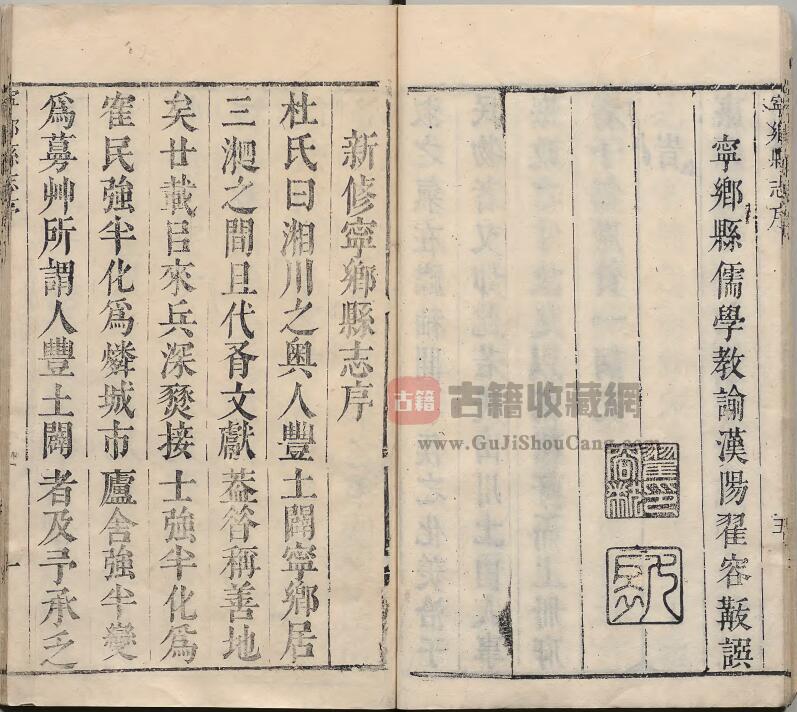 寧鄉縣志序
五
寧鄉縣儒學教諭漢陽翟容譔
新修寧鄉縣志序
杜氏曰湘川之奧人豐土闢寧鄉居
三之間且代文獻葢稱善地
矣廿載㠯來兵深燹接士強半化爲
寉民強半化爲燐城市廬舍強半變
爲艸所謂人豐土闢者及予承乏
寧鄉縣志序
一
古籍
古籍收藏網
www.GuJiShouCang.com